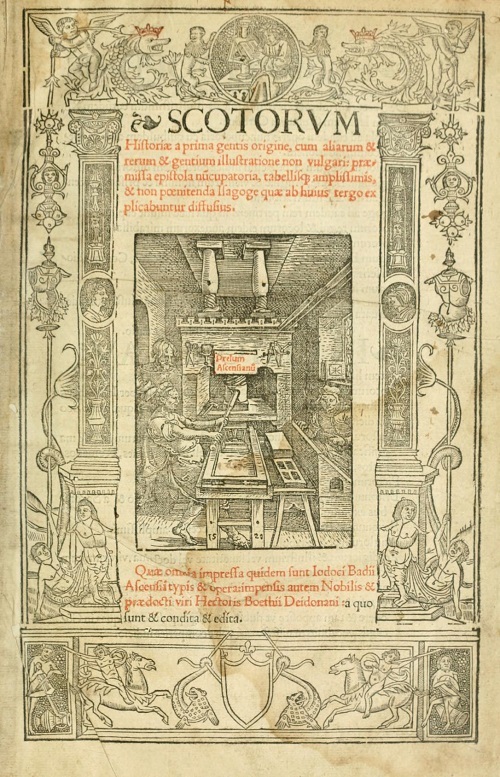 SCOTORVM
Historiæ a prima gentis origine, cum aliarum &
rerum & gentium illustratione non vulgari: præ-
missa epistola nūcupatoria, tabellisq; amplissimis,
& non pœnitenda Isagoge quæ ab huius tergo ex
plicabuntur diffusius.
Prelum
Ascensianū
15 2
Quæ omnia impressa quidem sunt Iodoci Badii
Ascensii typis & opera: impensis autem Nobilis &
prædocti viri Hectoris Boethii Deidonani: a quo
sunt & condita & edita.